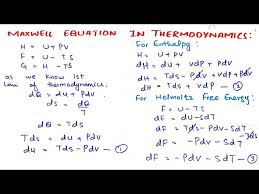 MAXWELL EQUATION IN THERMODYNAMICS:
H = U+PV
F = U-TS
G = H-TS
as we know Ist
Law of thermodynamics.
dQ = du + Pdv
ds = dQ
T
dQ = Tds
Tds = du+Pdv
du = Tds-Pdv - ①
For Enthalpy:
H = U+PV
dH = du + vdP + Pdv
dH = Tds-Pdv+vdP+Pdv
dH = Tds + vdP - ②
For Helmoltz Free Energy:
F = U-TS
dF = du-Tds-SdT
dF = Tds-Pdv-SdT-Tds
dF = -Pdv-SdT
dF = -Pdv-SdT - ③